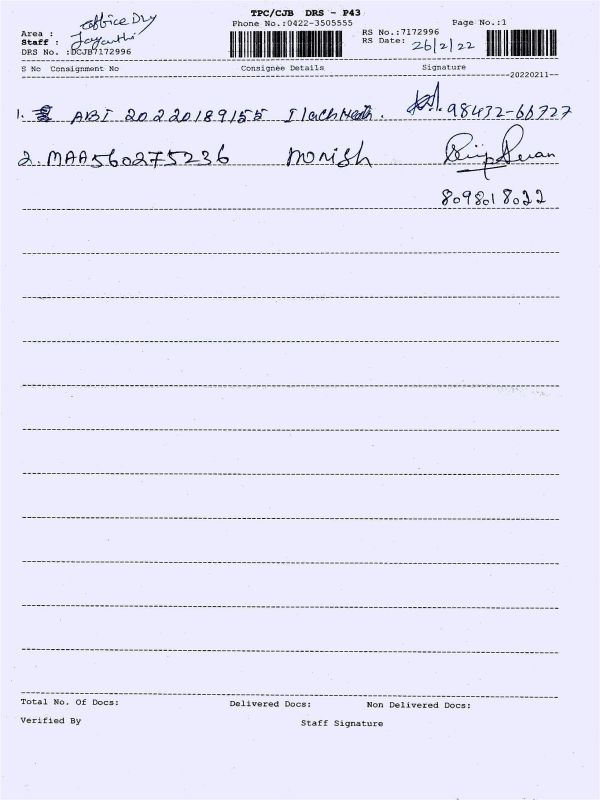 TPC/CJB DRS - P43
Phone No.:0422-3505555
Page No.:1
Area : Office Dly
Staff : Jayanthi
DRS No. :DCJB7172996
RS No.:7172996
RS Date: 26/2/22
S No Consignment No Consignee Details Signature
20220211
1. ABI 20220189155 98432-66727
2. MAA560275236 Monish
8098018022
Total No. Of Docs: Delivered Docs: Non Delivered Docs:
Verified By Staff Signature